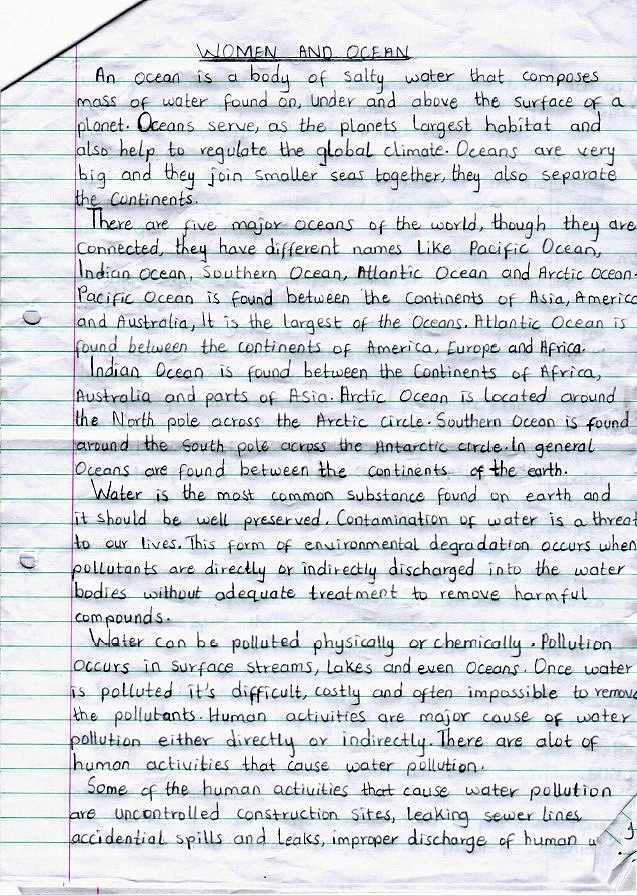 WOMEN AND OCEAN
An ocean is a body of salty water that composes
mass of water found on, under and above the surface of a
planet. Oceans serve, as the planets largest habitat and
also help to regulate the global climate. Oceans are very
big and they join smaller seas together, they also separate
the continents.
There are five major oceans of the world, though they are
connected, they have different names like Pacific Ocean,
Indian Ocean, Southern Ocean, Atlantic Ocean and Arctic Ocean.
Pacific Ocean is found between the continents of Asia, America
and Australia, It is the largest of the Oceans. Atlantic Ocean is
found between the continents of America, Europe and Africa.
Indian Ocean is found between the Continents of Africa,
Australia and parts of Asia. Arctic Ocean is Located around
the North pole across the Arctic circle. Southern Ocean is found
around the South pole across the Antarctic circle. In general
Oceans are found between the continents of the earth.
Water is the most common substance found on earth and
it should be well preserved. Contamination of water is a threat
to our lives. This form of environmental degradation occurs when
pollutants are directly or indirectly discharged into the water
bodies without adequate treatment to remove harmful
compounds.
Water can be polluted physically or chemically. Pollution
occurs in surface streams, Lakes and even Oceans. Once water
is polluted it's difficult, costly and often impossible to remove
the pollutants. Human activities are major cause of water
pollution either directly or indirectly. There are alot of
human activities that cause water pollution.
Some of the human activities that cause water pollution
are uncontrolled construction sites, leaking sewer lines
accidential spills and leaks, improper discharge of human